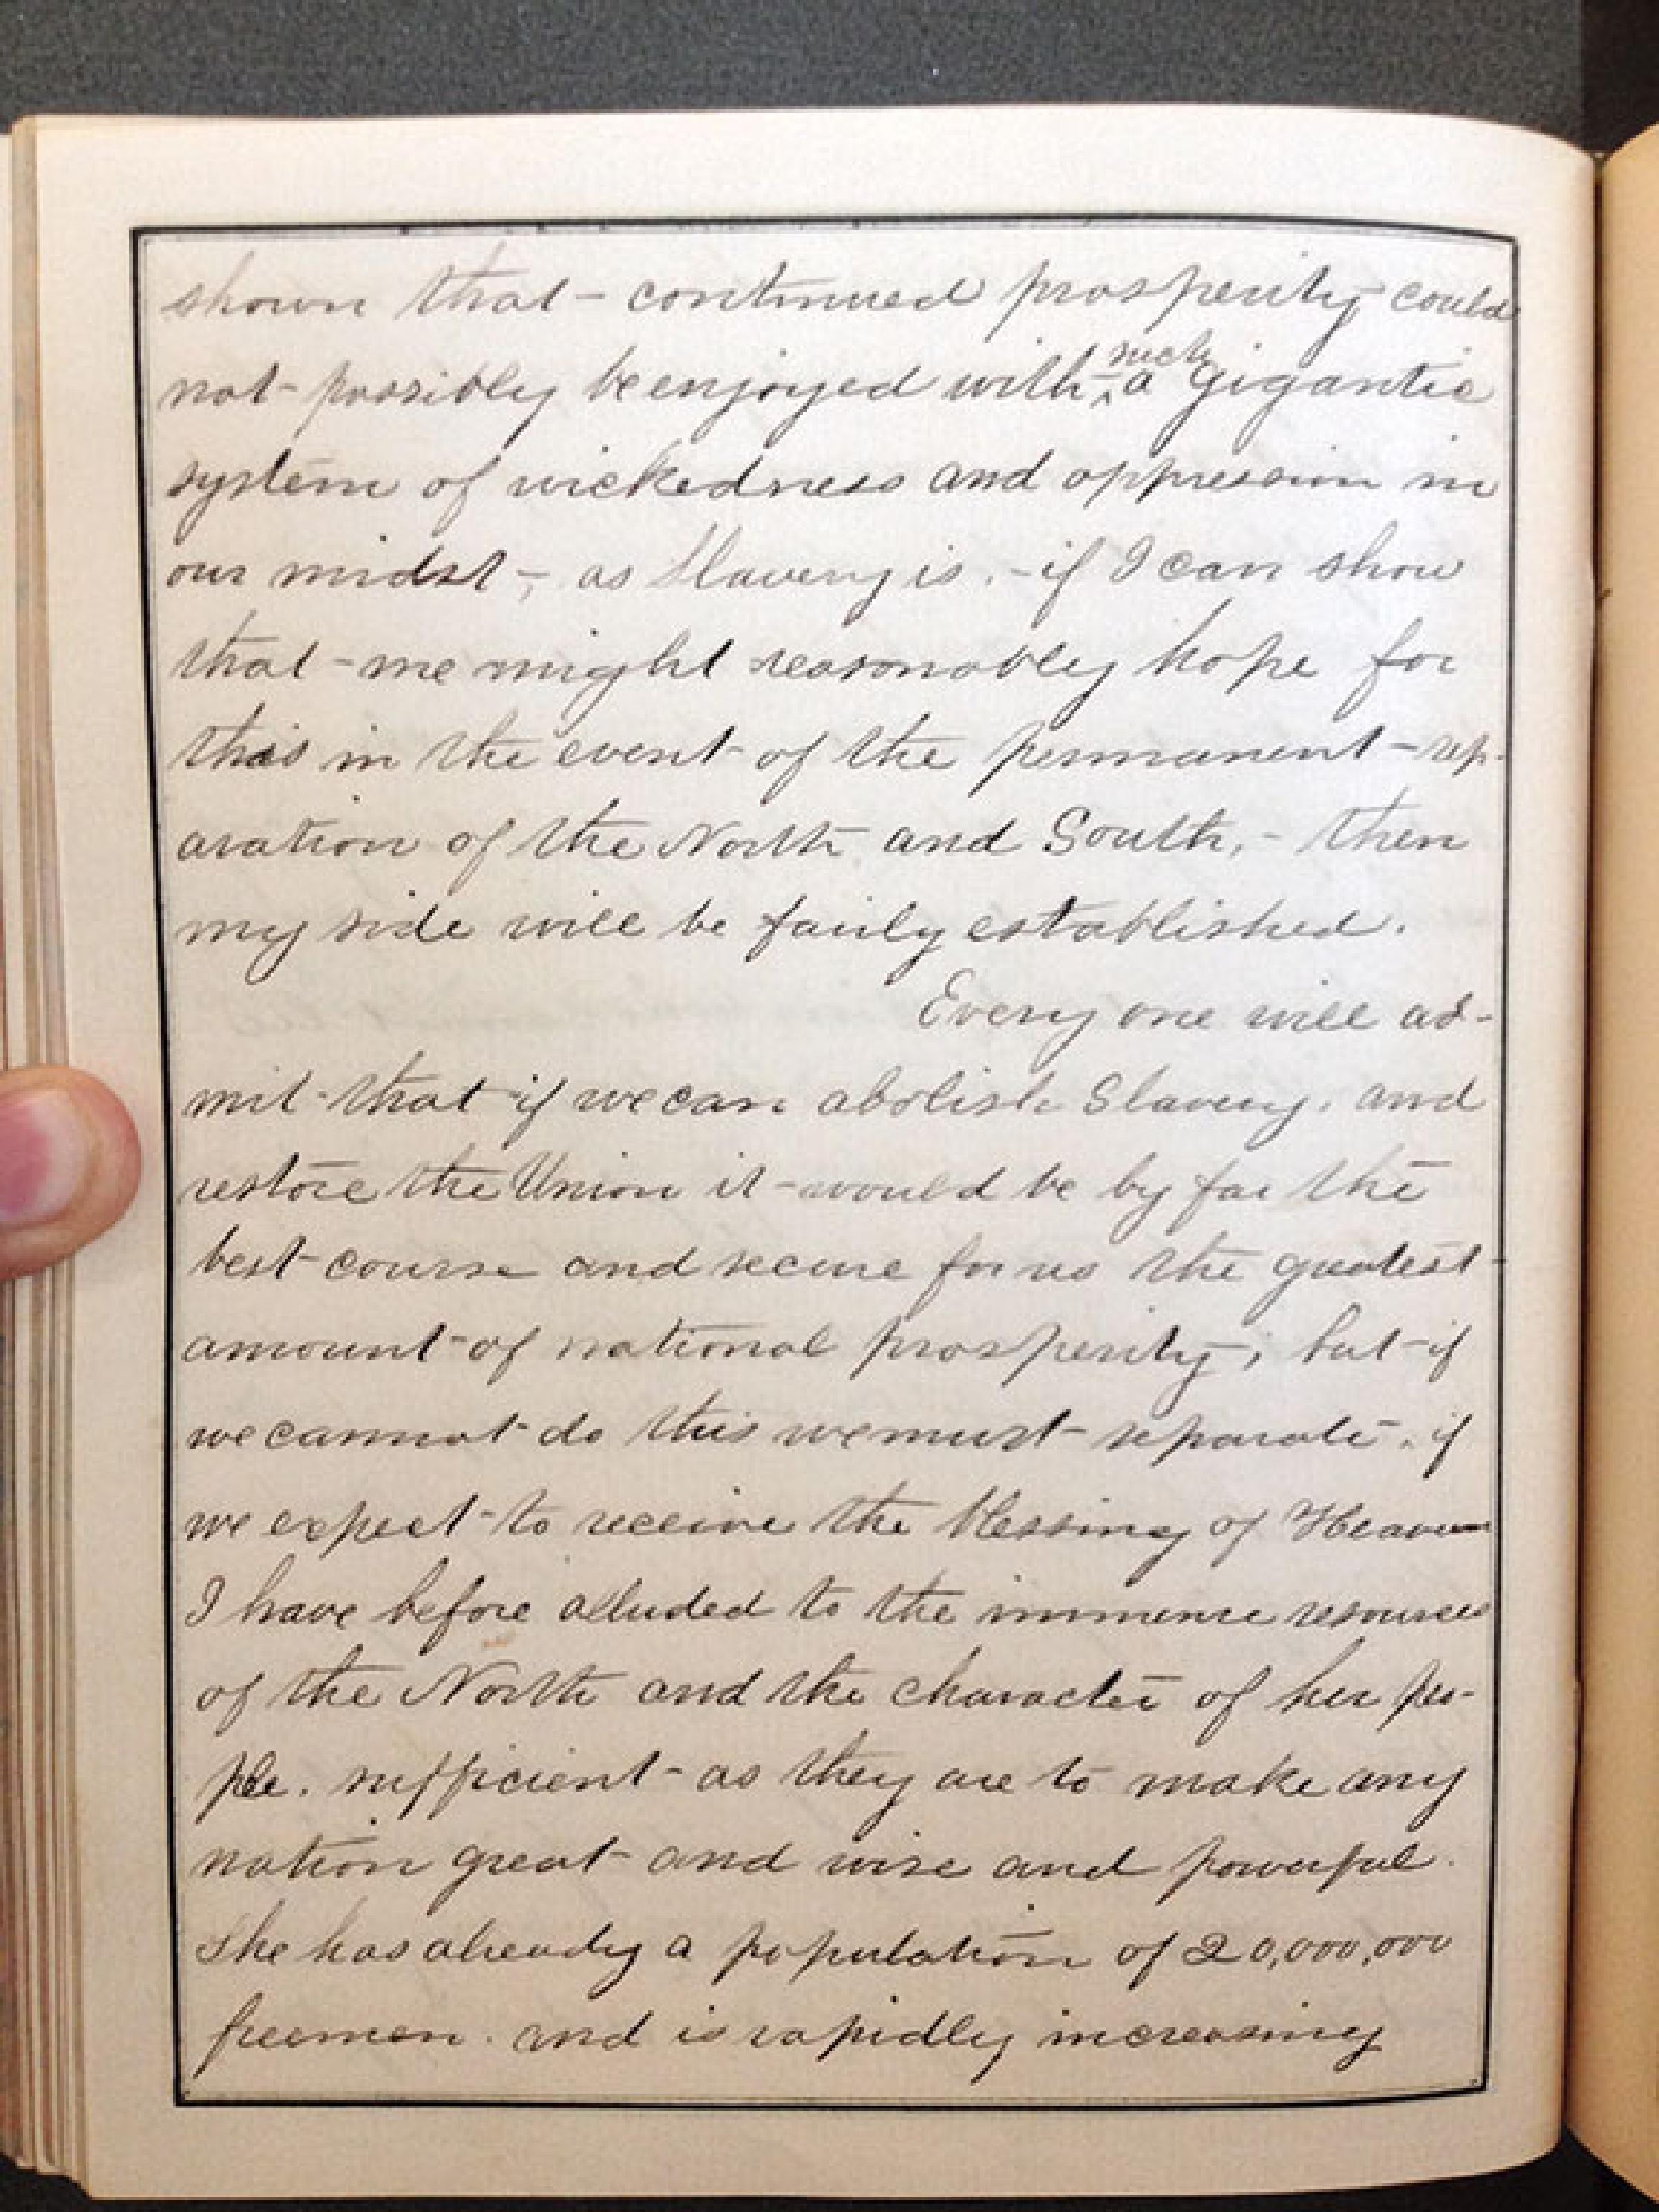 shown that - continued prosperity could
such
not possibly be enjoyed with a gigantic
system of wickedness and oppression in
our midst -, as Slavery is. - if I can show
that we might reasonably hope for
this in the event of the permanent sep-
aration of the North and South, - then
my side will be fairly established.
Every one will ad-
mit that if we can abolish Slavery, and
restore the Union it would be by far the
best course and secure for us the greatest
amount of national prosperity; but if
we cannot do this we must separate, if
we expect to receive the blessing of Heaven
I have before alluded to the immense resources
of the North and the character of her peo-
ple. sufficient as they are to make any
nation great and wise and powerful.
She has already a population of 20,000,000
freemen. and is rapidly increasing